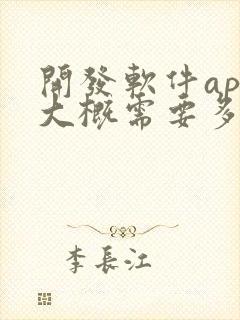 開發軟件ap
大概需要多
李長江